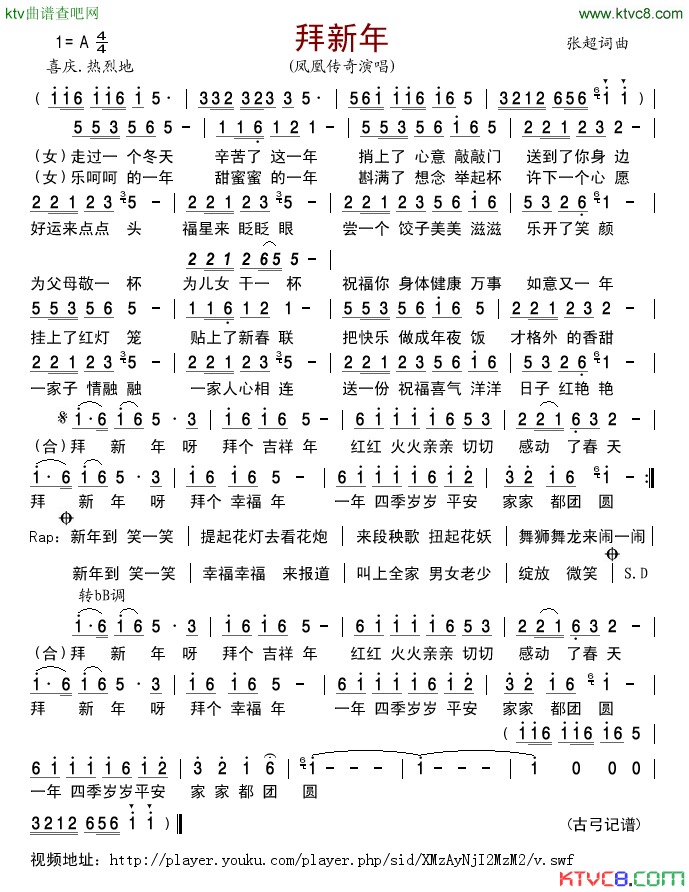 ktv曲谱查吧网
www.ktvc8.com
拜新年
1= A 4/4
张超词曲
喜庆.热烈地
(凤凰传奇演唱)
( i i6 i i6 i 5· | 332 323 5· | 56i i i6 i i | 3212 656 i i ) |
553 565 - | 116 121 - | 553 5656 i65 | 221 232 - |
(女)走过一 个冬天 辛苦了 这一年 捎上了 心意 敲敲门 送到了你身 边
(女)乐呵呵 的一年 甜蜜蜜 的一年 斟满了 想念 举起杯 许下一个心 愿
221 235 - | 221 235 - | 221 2323 565 | 553 565 - |
好运来点点 头 福星来 眨眨 眼 尝一个 饺子美美 滋滋 乐开了笑 颜
221 2655 - |
为父母敬一 杯 为儿女 干一 杯 祝福你 身体健康 万事 如意又一 年
553 565 - | 116 121 - | 553 5656 i65 | 221 232 - |
挂上了红灯 笼 贴上了新春 联 把快乐 做成年夜 饭 才格外 的香甜
221 235 - | 221 235 - | 221 2323 56i6 | 553 56i - |
一家子 情融 融 一家人心相 连 送一份 祝福喜气 洋洋 日子 红艳 艳
i·6 i6 5· 3 | i6 i6 5 - | 6i i i i6 53 | 221 632 - |
(合)拜 新 年 呀 拜个 吉祥 年 红红 火火亲亲 切切 感动 了春 天
i·6 i6 5· 3 | i6 i6 5 - | 6i i i i6 i2 | 32 i6 i - :|
拜 新 年 呀 拜个 幸福 年 一年 四季岁岁 平安 家家 都团 圆
Rap: 新年到 笑一笑 | 提起花灯去看花炮 | 来段秧歌 扭起花妖 | 舞狮舞龙来闹一闹 |
新年到 笑一笑 | 幸福幸福 来报道 | 叫上全家 男女老少 | 绽放 微笑 | S.D
转bB调
i·6 i6 5· 3 | i6 i6 5 - | 6i i i i6 53 | 221 632 - |
(合)拜 新 年 呀 拜个 吉祥 年 红红 火火亲亲 切切 感动 了春 天
i·6 i6 5· 3 | i6 i6 5 - | 6i i i i6 i2 | 32 i6 i - |
拜 新 年 呀 拜个 幸福 年 一年 四季岁岁 平安 家家 都团 圆
( i i6 i i6 i6 5 |
6i i i i6 i2 | 3 2 i 6 | i - - - | i - - - | i 0 0 0 |
一年 四季岁岁平安 家 家 都 团 圆
3212 656 i i ) ||
(古弓记谱)
视频地址: http://player.youku.com/player.php/sid/XMzAyNjI2MzM2/v.swf
KTVC8.COM